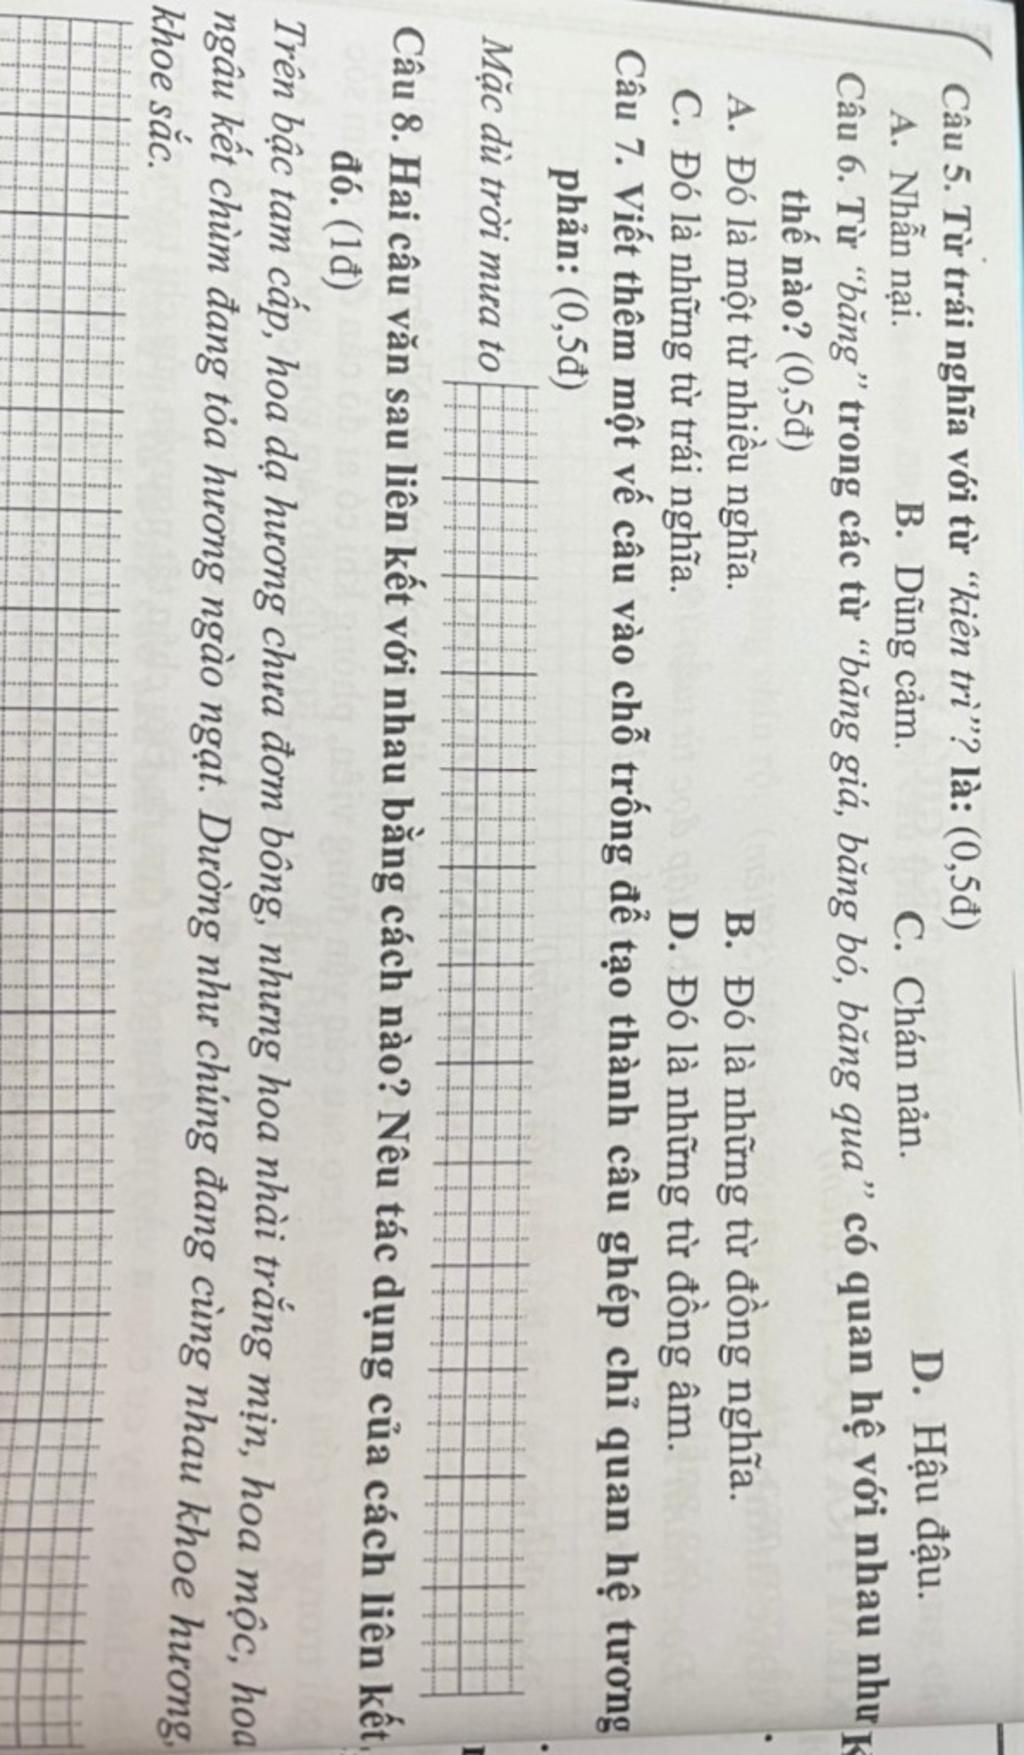 Câu 5. Từ trái nghĩa với từ “kiên trì”? là: (0,5đ)
A. Nhẫn nại. B. Dũng cảm. C. Chán nản. D. Hậu đậu.
Câu 6. Từ “băng” trong các từ “băng giá, băng bó, băng qua” có quan hệ với nhau như
thế nào? (0,5đ)
A. Đó là một từ nhiều nghĩa. B. Đó là những từ đồng nghĩa.
C. Đó là những từ trái nghĩa. D. Đó là những từ đồng âm.
Câu 7. Viết thêm một vế câu vào chỗ trống để tạo thành câu ghép chỉ quan hệ tương
phản: (0,5đ)
Mặc dù trời mưa to
Câu 8. Hai câu văn sau liên kết với nhau bằng cách nào? Nêu tác dụng của cách liên kết
đó. (1đ)
Trên bậc tam cấp, hoa dạ hương chưa đơm bông, nhưng hoa nhài trắng mịn, hoa mộc, hoa
ngâu kết chùm đang tỏa hương ngào ngạt. Dường như chúng đang cùng nhau khoe hương,
khoe sắc.